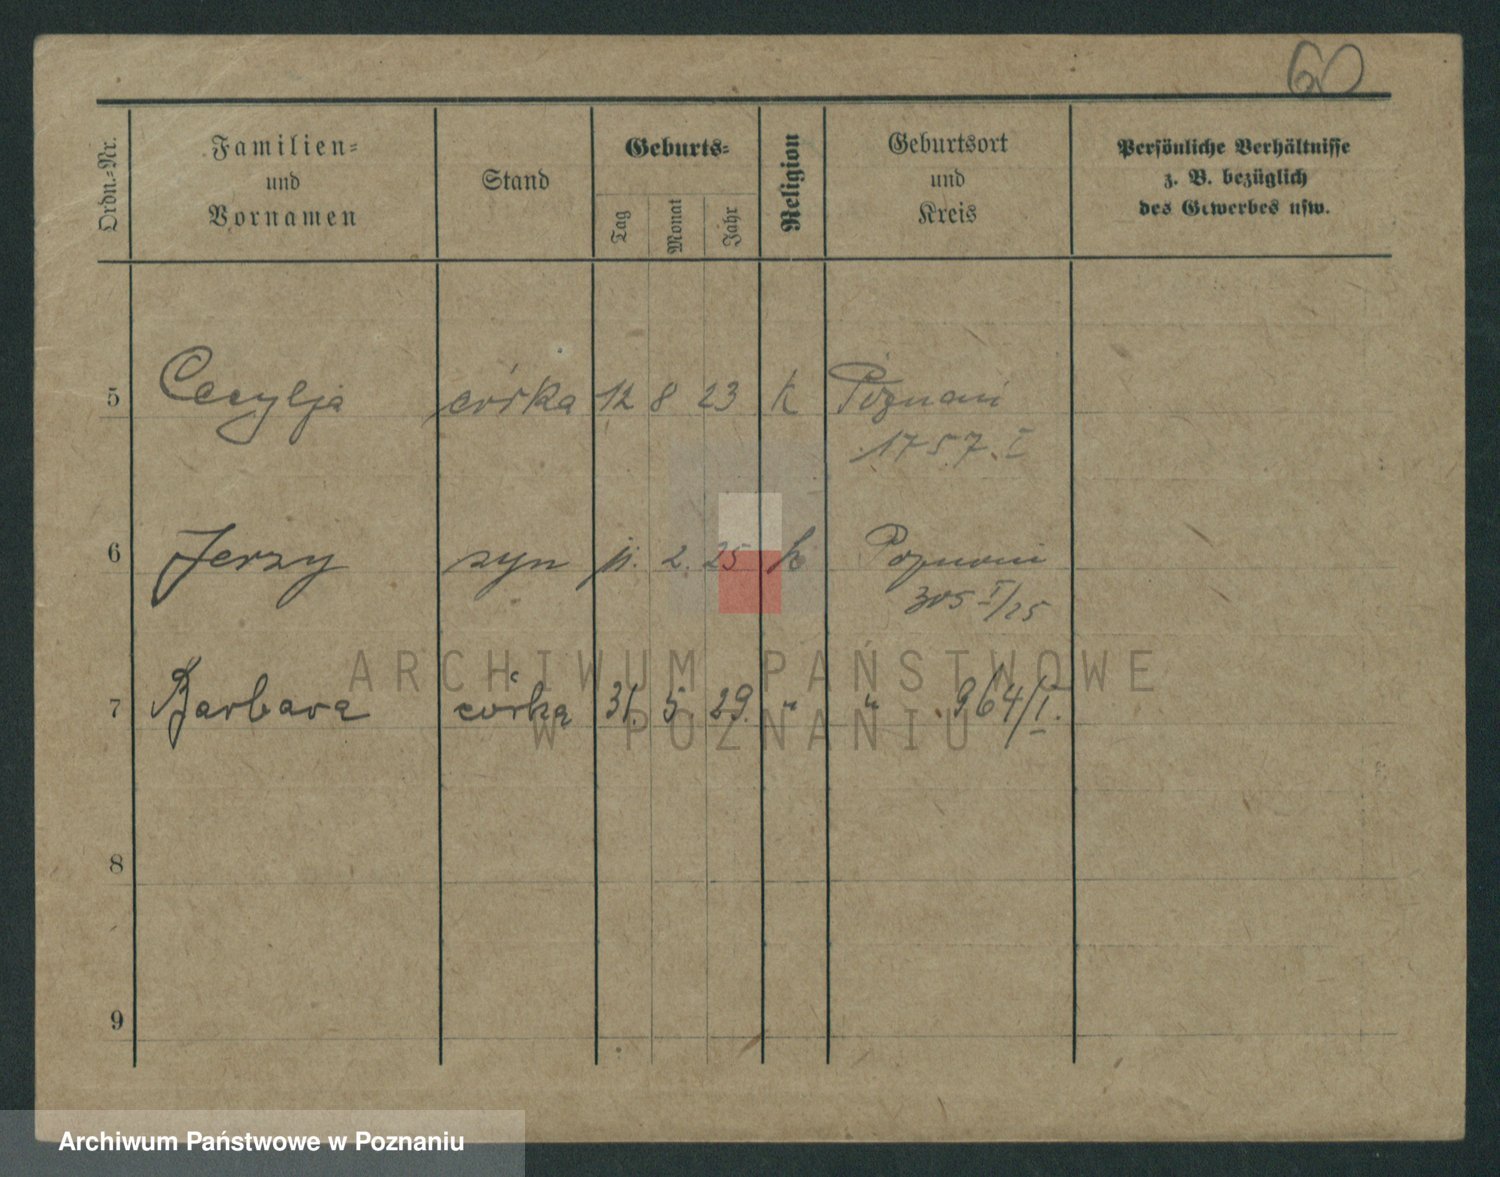 60
Ordn.-Nr.
Familien-
und
Vornamen
Stand
Geburts-
Tag
Monat
Jahr
Religion
Geburtsort
und
Kreis
Persönliche Verhältnisse
z. B. bezüglich
des Gewerbes usw.
5 Cecylja córka 12 8 23 k Poznań
1757. I
6 Jerzy syn 2. 25 k Poznań
305 I/25
ARCHIWUM PAŃSTWOWE
7 Barbara córka 31. 5 29. " " 964/I.
W POZNANIU
8
9
Archiwum Państwowe w Poznaniu